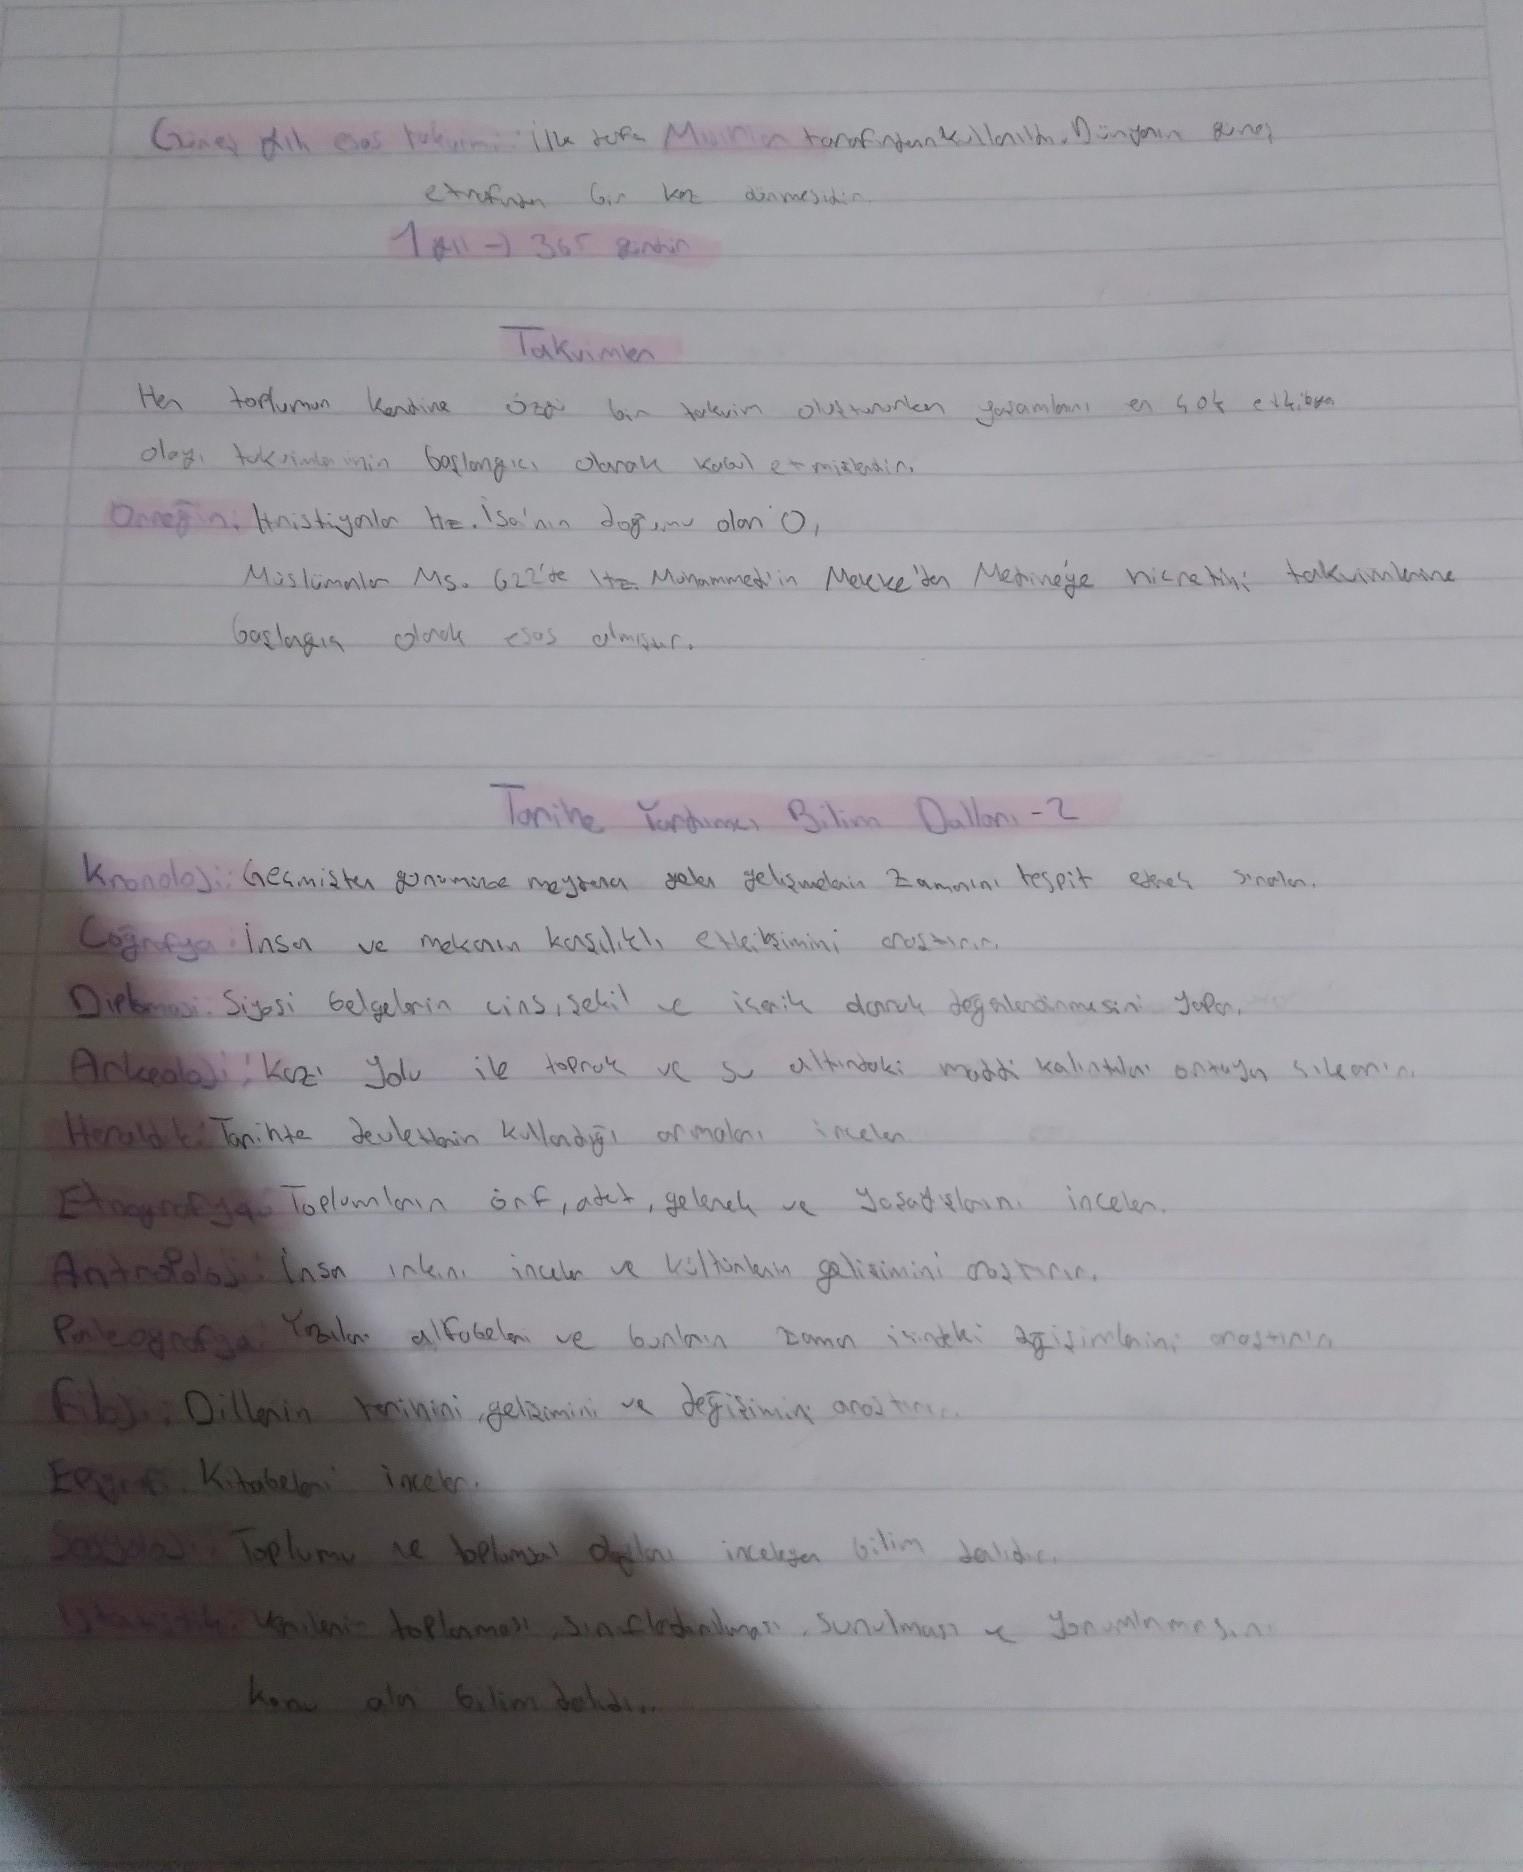 Güneş yılı esas takvimi: İlk defa Mısırlılar tarafından kullanıldı. Dünyanın güneş
etrafında bir kez dönmesidir.
1 yıl → 365 gündür
Takvimler
Her toplumun kendine özgü bir takvim oluştururken yaşamlarını en çok etkileyen
olayı takvimlerinin başlangıcı olarak kabul etmişlerdir.
Örneğin: Hristiyanlar Hz. İsa'nın doğumu olan 0,
Müslümanlar Ms. 622'de Hz. Muhammed'in Mekke'den Medine'ye hicretini takvimlerine
başlangıç olarak esas almıştır.
Tarihe Yardımcı Bilim Dalları - 2
Kronoloji: Geçmişten günümüze meydana gelen gelişmelerin zamanını tespit ederek sıralar.
Coğrafya: İnsan ve mekanın karşılıklı etkileşimini araştırır.
Diplomasi: Siyasi belgelerin cins, şekil ve içerik olarak değerlendirmesini yapar.
Arkeoloji: Kazı yolu ile toprak ve su altındaki maddi kalıntıları ortaya çıkarır.
Heraldik: Tarihte devletlerin kullandığı armaları inceler
Etnografya: Toplumların örf, adet, gelenek ve yaşayışlarını inceler.
Antropoloji: İnsan ırkını inceler ve kültürlerin gelişimini araştırır.
Paleografya: Yazıları alfabeleri ve bunların zaman içindeki değişimlerini araştırır
Filoloji: Dillerin tarihini, gelişimini ve değişimini araştırır.
Epigrafi: Kitabeleri inceler.
Sosyoloji: Toplumu ve toplumsal olayları inceleyen bilim dalıdır.
İstatistik: Verilerin toplanması, sınıflandırılması, sunulması ve yorumlanmasını
konu alan bilim dalıdır.